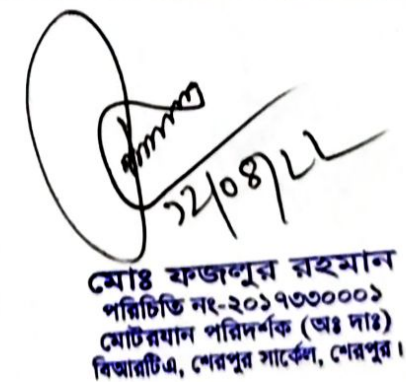 ১২/০৪/২২
মোঃ ফজলুর রহমান
পরিচিতি নং-২০১৭৩৩০০০১
মোটরযান পরিদর্শক (অঃ দাঃ)
বিআরটিএ, শেরপুর সার্কেল, শেরপুর।